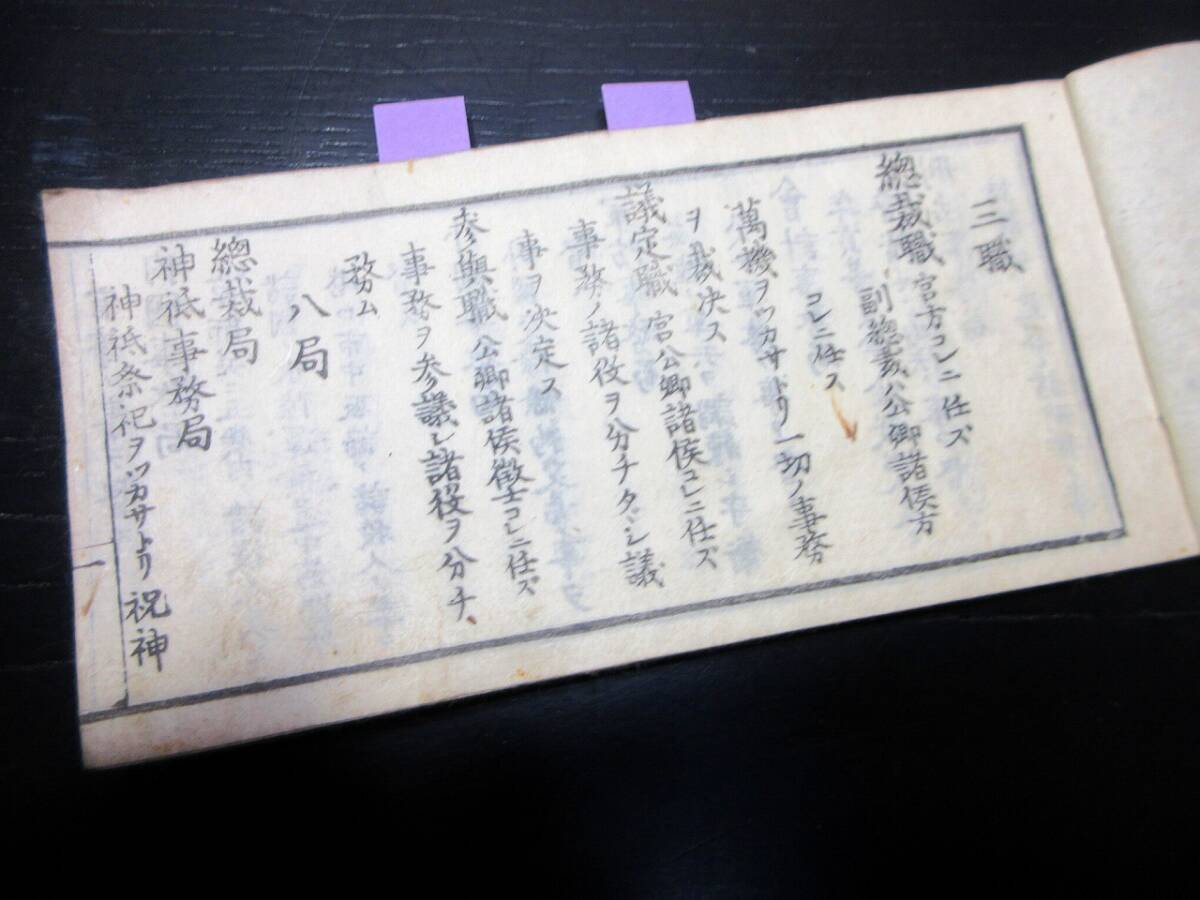 三職
總裁職 宮方コレニ任ズ
副總裁ハ公卿諸侯方
コレニ任ス
萬機ヲツカサトリ一切ノ事務
ヲ裁决ス
議定職 宮公卿諸侯コレニ任ズ
事務ノ諸役ヲ分チタヾシ議
事ヲ决定ス
参與職 公卿諸侯徴士コレニ任ズ
事務ヲ参議シ諸役ヲ分チ
務ム
八局
總裁局
神祇事務局
神祇祭祀ヲツカサトリ祝神
一